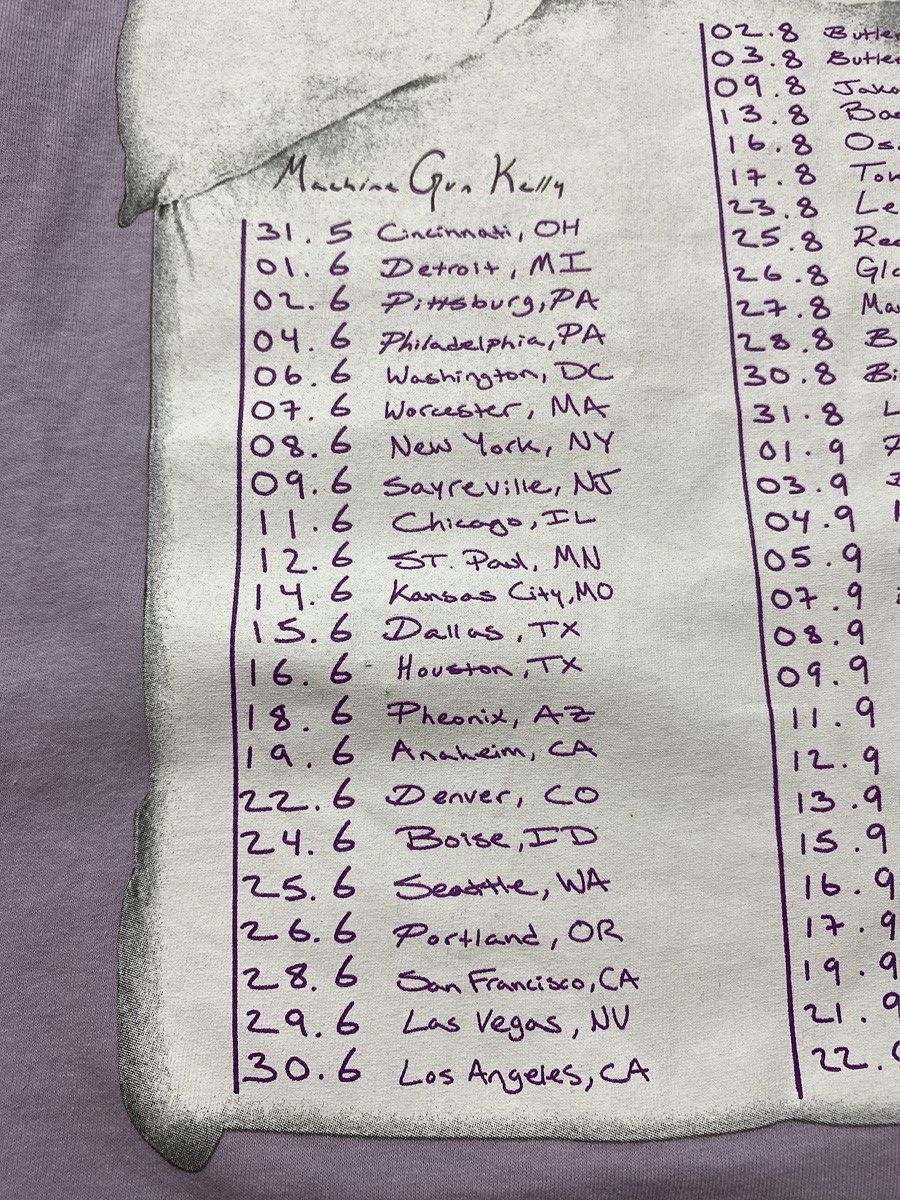 Machine Gun Kelly
31.5 Cincinnati, OH
01.6 Detroit, MI
02.6 Pittsburg, PA
04.6 Philadelphia, PA
06.6 Washington, DC
07.6 Worcester, MA
08.6 New York, NY
09.6 Sayreville, NJ
11.6 Chicago, IL
12.6 ST. Paul, MN
14.6 Kansas City, MO
15.6 Dallas, TX
16.6 Houston, TX
18.6 Pheonix, AZ
19.6 Anaheim, CA
22.6 Denver, CO
24.6 Boise, ID
25.6 Seattle, WA
26.6 Portland, OR
28.6 San Francisco, CA
29.6 Las Vegas, NV
30.6 Los Angeles, CA
02.8 Butler
03.8 Butler
09.8
13.8
16.8
17.8
23.8
25.8
26.8
27.8
28.8
30.8
31.8
01.9
03.9
04.9
05.9
07.9
08.9
09.9
11.9
12.9
13.9
15.9
16.9
17.9
19.9
21.9
22.